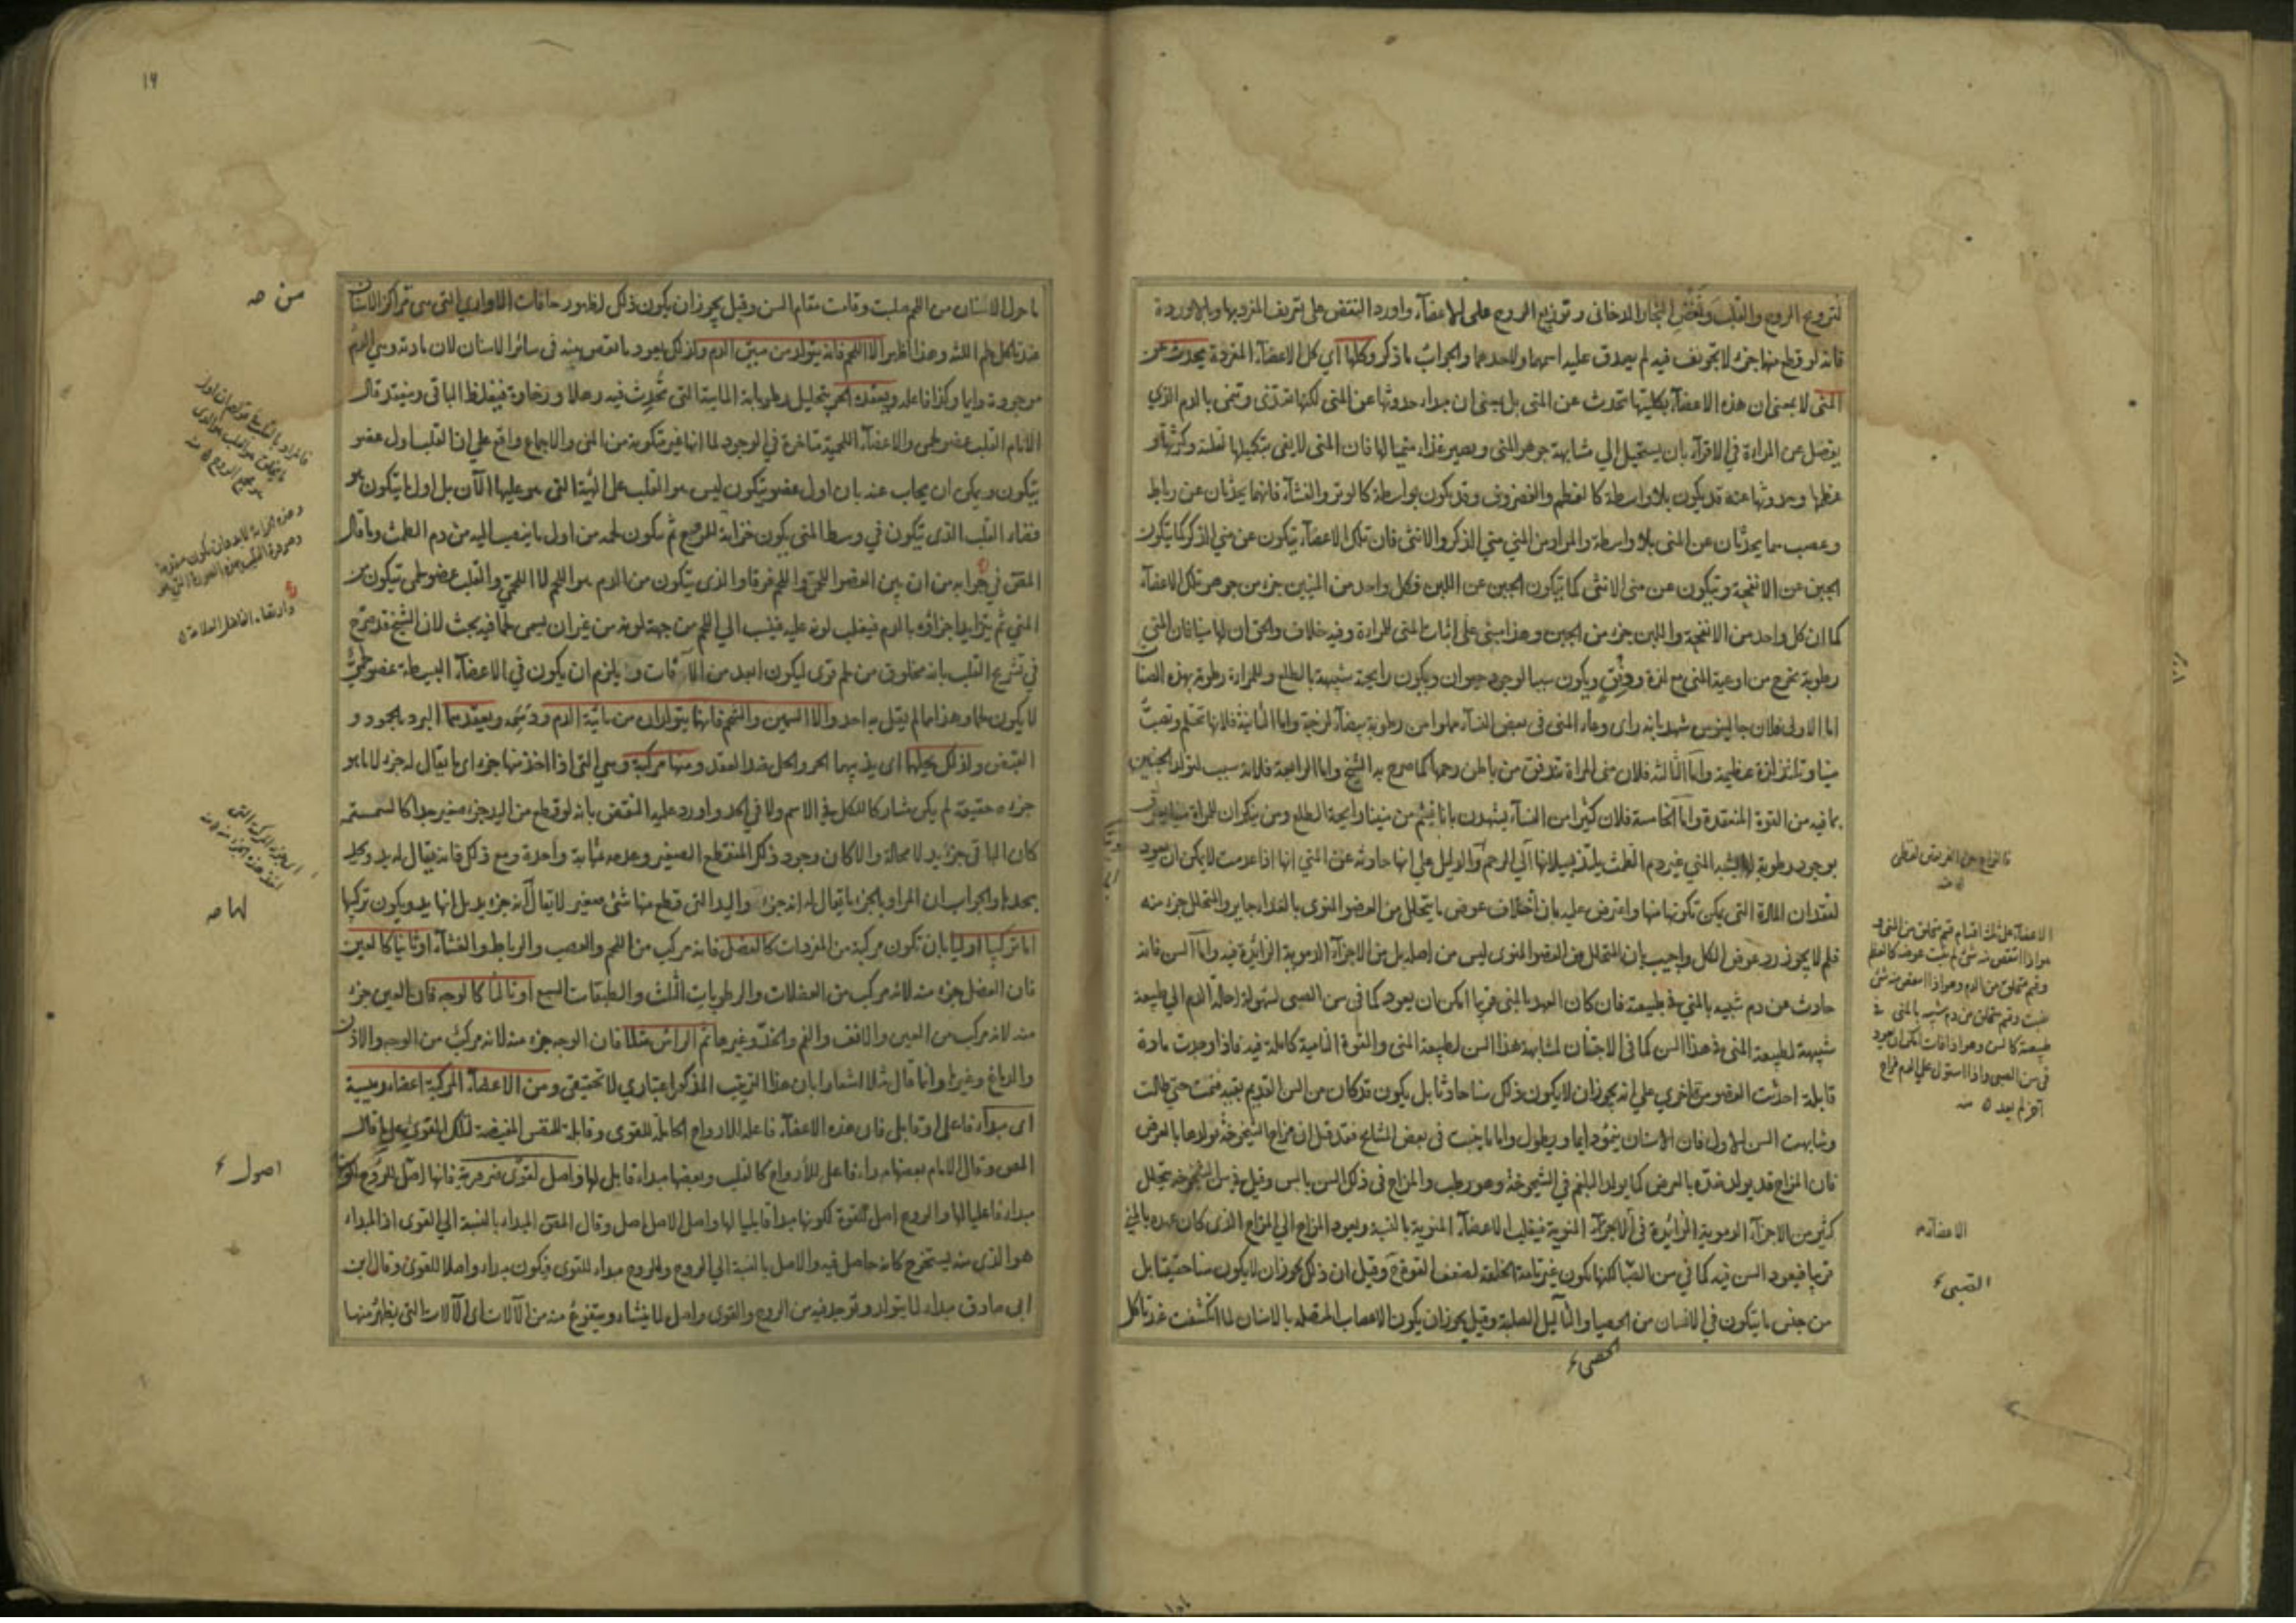 لترويح الروح والقلب ونفض البخار الدخانى وتوزيع الروح على الاعضاء واورد النقض على تعريف المفرد بها وبالاوردة
فانه لو قطع منها جزء لا تجويف فيه لم يصدق عليه اسمها ولا حدها والجواب ما ذكر وكلها اي كل الاعضاء المفردة يحدث عن
المنى لا بمعنى ان هذه الاعضاء بكليتها تحدث عن المنى بل بمعنى ان مبداء حدوثها عن المنى لكنها تغتذى وتنمى بالدم الذي
يفصل عن المراة في الاقراء بان يستحيل الي مشابهة جوهر المنى ويصير غذاء منميا لها فان المنى لا يفى بتكميلها لقلته وكثرتها و
عظمها وحدوثها عنه قد يكون بلا واسطة كالعظم والغضروف وقد يكون بواسطة كالوتر والغشاء فانهما يحدثان عن رباط
وعصب هما يحدثان عن المنى بلا واسطة والمراد من المني مني الذكر والانثى فان تلك الاعضاء تتكون عن مني الذكر كما يتكون
الجبن عن الانفحة وتتكون عن منى الانثى كما يتكون الجبن عن اللبن وكل واحد من المنيين جزء من جوهر تلك الاعضاء
كما ان كل واحد من الانفحة واللبن جزء من الجبن وهذا مبنى على اثبات المنى للمراة وفيه خلاف والحق ان لها منيا فان المني
رطوبة تخرج من اوعية المنى مع لذة ودفق ويكون سببا لوجود حيوان ويكون رايحته شبيهة بالطلع وللمراة رطوبة بهذه الصفات
اما الاولى فلان جالينوس شهد بانه راى وعاء المنى فى بعض النساء مملوا من رطوبة بيضاء لزجة واما الثانية فلانها تحتلم وتصب
منيا وتلتذ لذة عظيمة واما الثالثة فلان منى المراة تندفق من باطن رحمها كما صرح به الشيخ واما الرابعة فلانه سبب لتولد الجنين
بما فيه من القوة المنعقدة واما الخامسة فلان كثيرا من النساء يشهدن بانا نشم من منينا رايحة الطلع ومن ينكر ان للمراة منيا يعترف
بوجود رطوبة لها تشبه المني غير دم الطمث يلتذ بسيلانها الي الرحم والدليل على انها حادثة عن المني انها اذا عدمت لا يمكن ان يعود
لفقدان المادة التى يمكن تكونها منها واعترض عليه بان اخلاف عوض ما يتحلل من العضو المنوى بالغذاء جايز والمتحلل جزء منه
فلم لا يجوز رد عوض الكل واجيب بان المتحلل من العضو المنوى ليس من اصله بل من الاجزاء الدموية الزائدة فيه واما السن فانه
حادث عن دم شبيه بالمني في طبيعته فان كان العهد بالمنى قريبا امكن ان يعود كما فى سن الصبى لسهولة احالة الدم الي طبيعة
شبيهة لطبيعة المنى في هذا السن كما فى الاجنان لمشابهة هذا السن لطبيعة المنى والقوة النامية كاملة فيه فاذا وجدت مادة
قابلة احدثت العضو مرة اخري على انه يجوز ان لا يكون ذلك سنا حادثا بل يكون قد كان من السن القديم بقية فنمت حتى طالت
وشابهت السن الاول فان الاسنان ينمو دايما ويطول واما ما ينبت فى بعض المشايخ فقد قيل ان مزاج الشيخوخة مولدها بالعرض
فان المزاج قد يولد ضده بالعرض كما يولد البلغم في الشيخوخة وهو رطب والمزاج فى ذلك السن يابس وقيل في سن الشيخوخة يتحلل
كثير من الاجزاء الدموية الزائدة فى الاجزاء المنوية فيغلب الاعضاء المنوية بالنسبة ويعود المزاج الى المزاج الذى كان عهده بالمني
قريبا فيعود السن فيه كما في سن الصبا لكنها يكون غير تامة الخلقة لضعف القوة وقيل ان ذلك يجوز ان لا يكون سنا حقيقة بل
من جنس ما يتكون في الانسان من الحصيا والثآليل الصلبة وقيل يجوز ان يكون الاعصاب المتصلة بالاسنان لما انكشفت عند تاكل
الحصى
فالنزاع من الفريقين لفظى
منه
الاعضاء على ثلث اقسام قسم متخلق من المنى و
هو اذا انتقص منه شئ لم ينبت عوضه كالعظم
وقسم متخلق من الدم وهو اذا انتقص منه شئ
ينبت وقسم متخلق من دم شبيه بالمنى فى
طبيعته كالسن وهو اذا فات امكن ان يعود
فى سن الصبى واذا استولى على الدم مزاج
آخر لم يعد منه
الاعضاء
الصبى
١٩
ما حول الاسنان من اللحم صلبت وقامت مقام السن وقيل يجوز ان يكون ذلك لظهور حافات الاواري التى هى مراكز الاسنان
عند تاكل لحم اللثة وهذا اظهر الا اللحم فانه يتولد من متين الدم ولذلك يعود ما نقص منه فى سائر الاسنان لان مادته وهي الدم
موجودة دايما وكذا فاعله ويعقده الحر بتحليل رطوباته المائية التى تحدث فيه رهلا ورخاوة فيغلظ الباقى وينعقد قال
الامام القلب عضو لحمى والاعضاء اللحمية متاخرة في الوجود لما انها غير متكونة من المنى والاجماع واقع على ان القلب اول عضو
يتكون ويمكن ان يجاب عنه بان اول عضو يتكون ليس هو القلب على الهيئة التى هو عليها الآن بل اول ما يتكون هو
فضاء القلب الذى يتكون في وسط المنى يكون خزانة للروح ثم يتكون لحمه من اول ما ينصب اليه من دم الطمث وما قال
المحقق في جوابه من ان بين العضو اللحمى واللحم فرقا والذى يتكون من الدم هو اللحم لا اللحمى والقلب عضو لحمى يتكون من
المني ثم يتزايد اجزائه بالدم فيغلب لونه عليه فينسب الي اللحم من جهة لونه من غير ان يسمى لحما فيه بحث لان الشيخ قد صرح
في تشريح القلب بانه مخلوق من لحم قوى ليكون ابعد من الآفات و يلزم ان يكون في الاعضاء البسيطة عضو لحمي
لا يكون لحما وهذا مما لم يقل به احد والا السمين والشحم فانهما يتولدان من مائية الدم ودسمه ويعقدهما البرد بالجمود و
التقبض ولذلك يحلهما اى يذيبهما الحر والحل ضد العقد ومنها مركبة وهي التى اذا اخذ منها جزء اى ما يقال له جزء لا ما هو
جزء حقيقة لم يكن مشاركا للكل فى الاسم ولا في الحد واورد عليه النقض بانه لو قطع من اليد جزء صغير جدا كالسمسمة
كان الباقى جزء يد لا محالة والا كان وجود ذلك المنقطع الصغير وعدمه بمثابة واحدة ومع ذلك فانه يقال له يد ويحد
بحدها والجواب ان المراد بالجزء ما يقال له انه جزء واليد التى قطع منها شئ صغير لا يقال لها انه جزء يد بل انها يد ويكون تركبها
اما تركيبا اوليا بان تكون مركبة من المفردات كالعضل فانه مركب من اللحم والعصب والرباط والغشاء او ثانيا كالعين
فان العضل جزء منه لانه مركب من العضلات والرطوبات الثلث والطبقات السبع او ثالثا كالوجه فان العين جزء
منه لانه مركب من العين والانف والفم والخد وغيرها ثم الراس مثلا فان الوجه جزء منه لانه مركب من الوجه والاذن
والدماغ وغيرها وانما قال مثلا اشعارا بان هذا الترتيب المذكور اعتباري لا تحقيقى ومن الاعضاء المركبة اعضاء رئيسية
اى مبداء فاعلى او قابلى فان هذه الاعضاء فاعلة للارواح الحاملة للقوى وقابلة للنفس المفيضة لتلك القوى على ما قاله
المص وقال الامام بعضها مبداء فاعلى للارواح كالقلب وبعضها مبداء قابلى لها واصل لقوى ضرورية فانها اصل للروح لكونها
مبداء فاعليا لها والروح اصل للقوة لكونها مبدا قابليا لها واصل الاصل اصل وقال المحقق المبداء بالنسبة الي القوى اذ المبداء
هو الذى منه يستخرج كانه حاصل فيه والاصل بالنسبة الي الروح والروح مبداء للقوى فيكون مبداء واصلا للقوى وقال ابن
ابى صادق مبداء لما يتولد وتوجد فيه من الروح والقوى واصل لما ينشاء ويتفرع منه من الآلات اى الآلات التى يظهر منها
من صه
لها صه
اصول